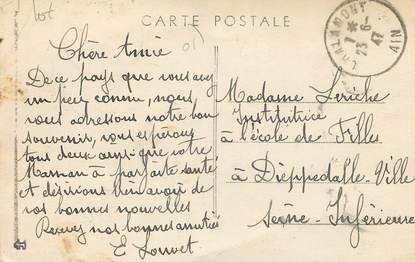 Lot
CARTE POSTALE
CHALAMONT
23-6
47
AIN
Chère Amie
De ce pays que vous avez
un peu connu, nous
vous adressons notre bon
souvenir, nous espérons
tous deux ainsi que votre
Maman à parfaite santé
et désirions bien avoir de
vos bonnes nouvelles
Recevez nos bonnes amitiés
E Louvet
Madame Leriche
Institutrice
à l'école de Filles
à Dieppedalle-Ville
Seine-Inférieure